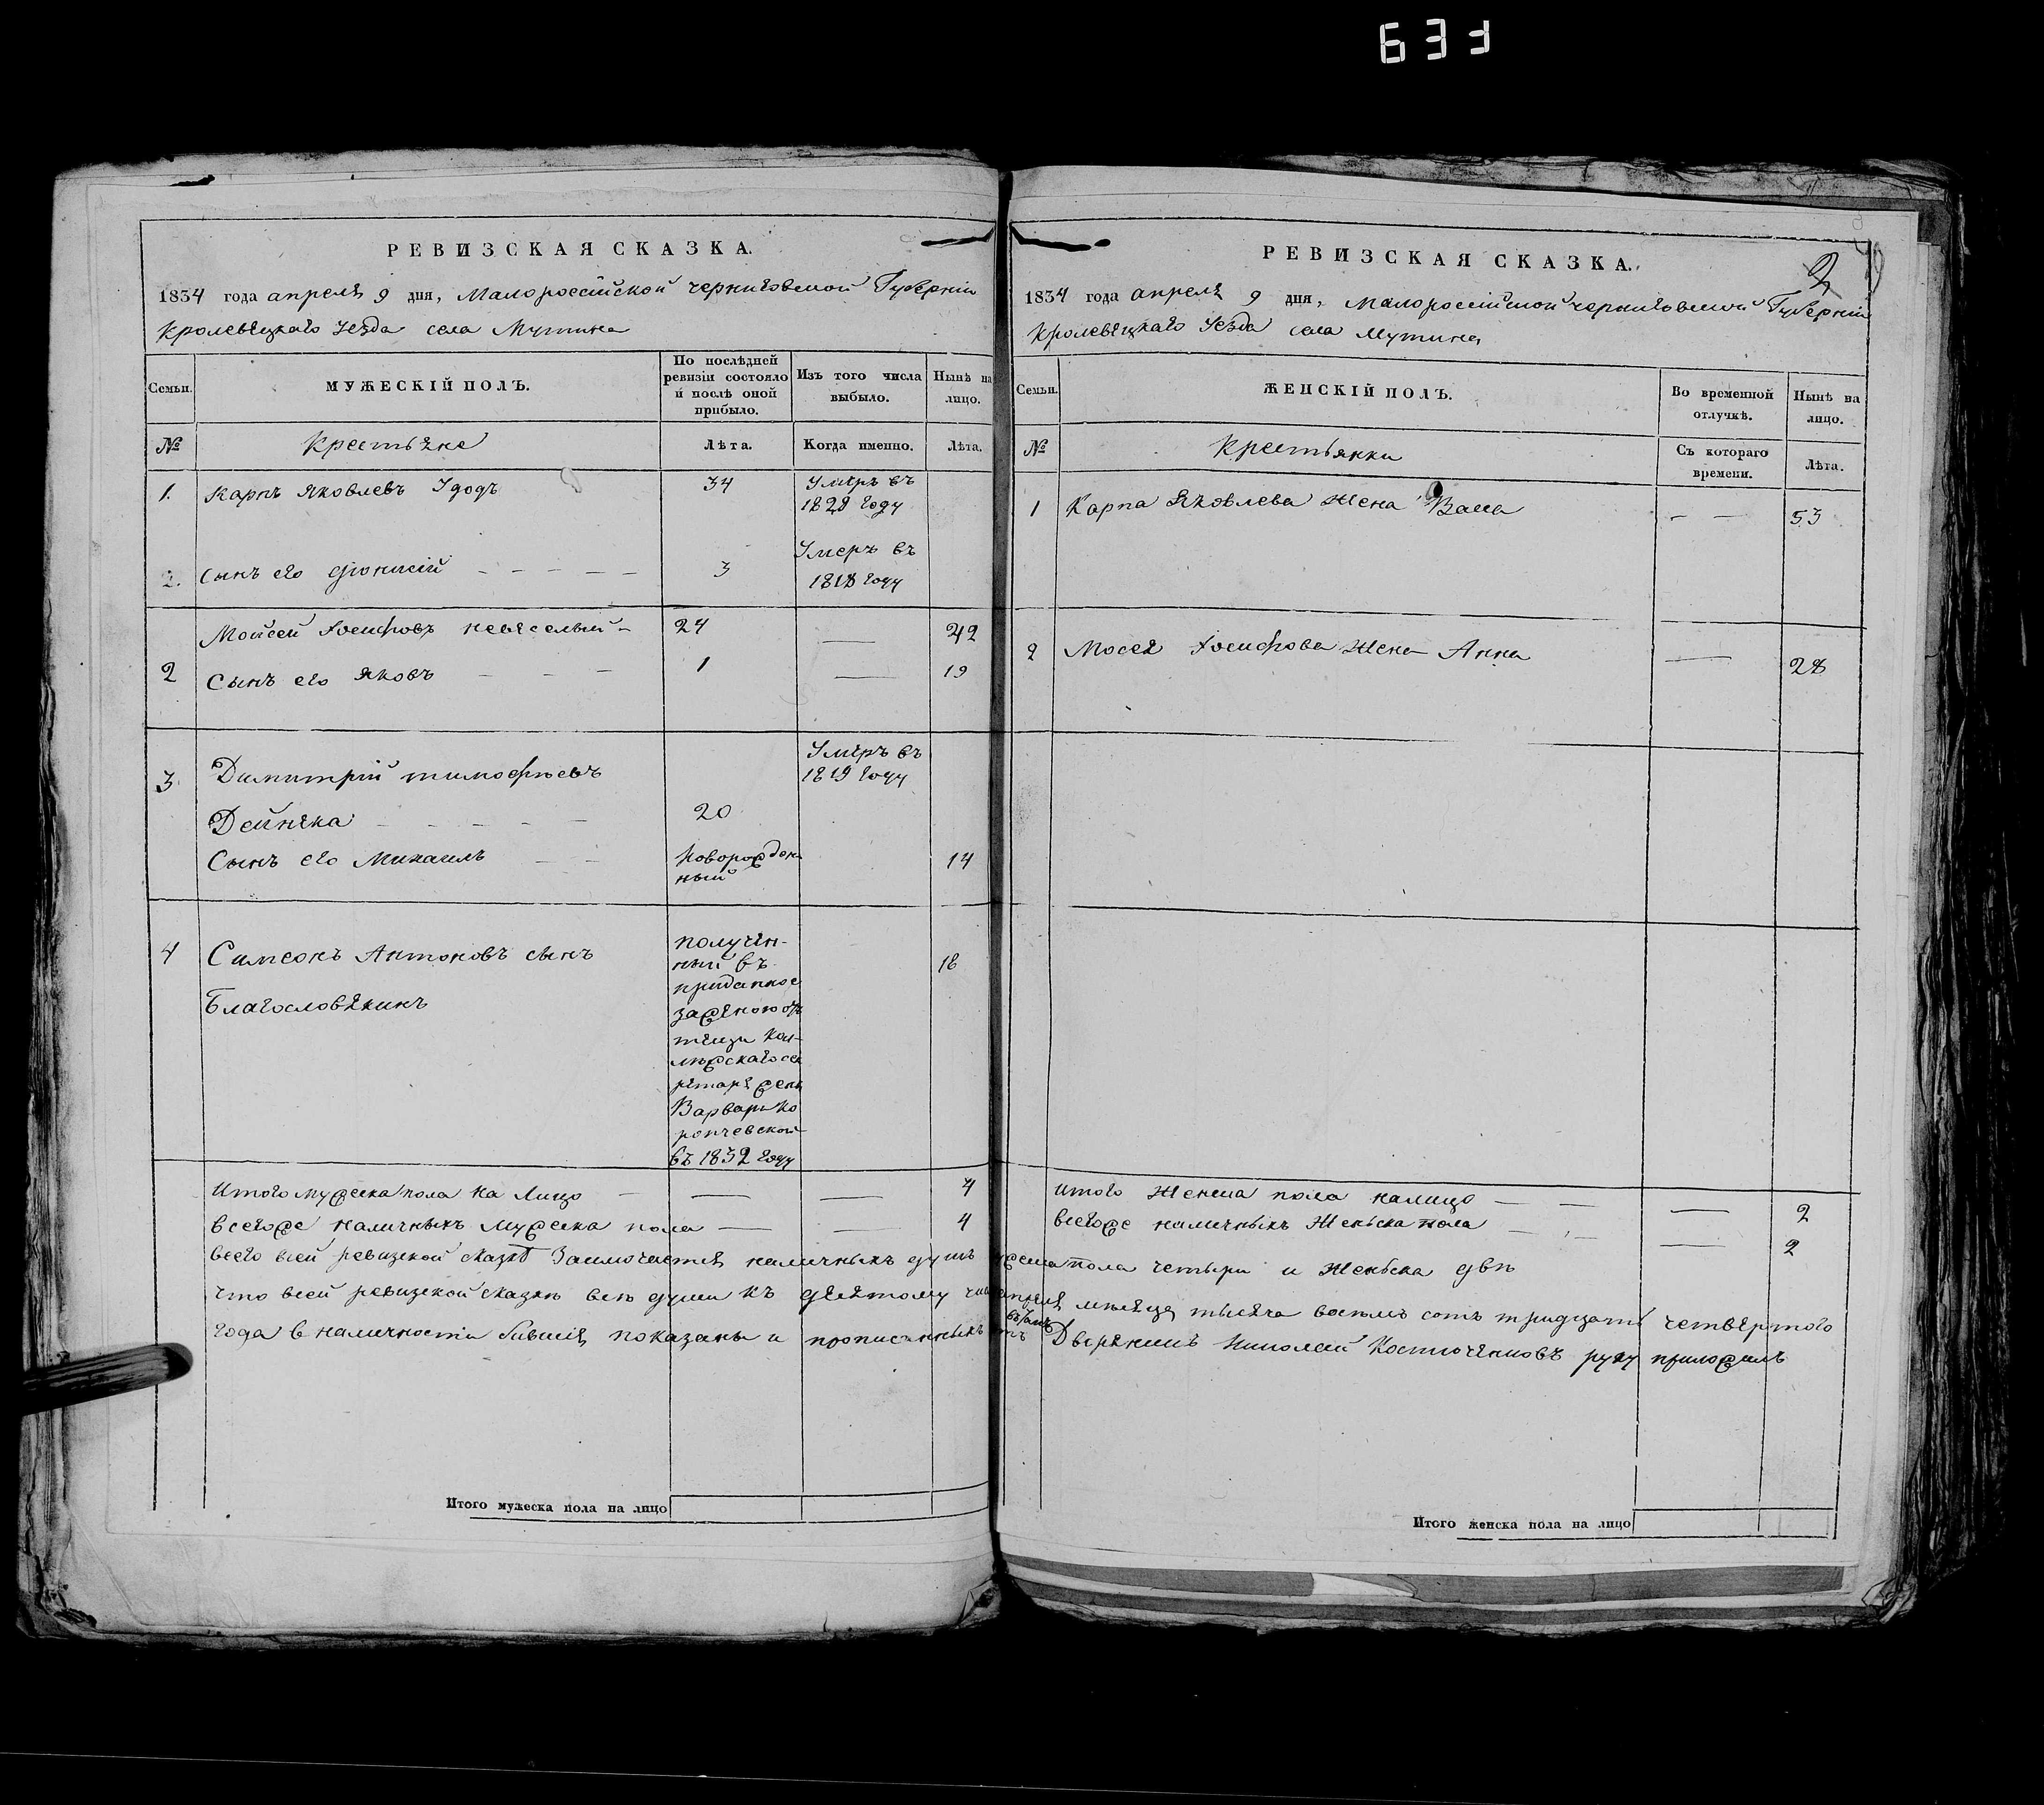 633
РЕВИЗСКАЯ СКАЗКА.
1834 года апреля 9 дня, Малороссійской черниговской Губерніи
Кролевецкаго уезда села Мутина
Семьи.
МУЖЕСКІЙ ПОЛЪ.
По послѣдней ревизіи состояло и послѣ оной прибыло.
Изъ того числа выбыло.
Нынѣ на лицо.
№
Крестьяне
Лѣта.
Когда именно.
Лѣта.
1. Карпъ Яковлевъ Удодъ 34 Умеръ въ
1828 году
2. сынъ его Дионисій — — — — — 3 Умеръ въ
1818 году
Мойсей Іосифовъ невеселый — 24 — 42
2 Сынъ его Яковъ — — — 1 — 19
3 Димитрій тимофѣевъ Умеръ въ
1819 году
Дейнека — — — — — 20
Сынъ его Михаилъ — — Новорожден
ный 14
4 Самсонъ Антоновъ сынъ 18
Благословенинъ
получен-
ный въ
приданное
заженою от
тещи Кол-
лежскаго сек
ретаря жены
Варвары Ко
ропчевской
въ 1832 году
Итого мужеска пола на лицо — — — 4
всегоже наличныхъ мужеска пола — — 4
Итого мужеска пола на лицо
РЕВИЗСКАЯ СКАЗКА.
2
1834 года апреля 9 дня, Малороссійской черниговской Губерніи
Кролевецкаго уезда села Мутина
Семьи.
ЖЕНСКІЙ ПОЛЪ.
Во временной отлучкѣ.
Нынѣ на лицо.
№
Крестьянки
Съ котораго времени.
Лѣта.
1 Карпа Яковлева жена — — 53
2 Мосея Іосифова жена Анна — 28
Итого женска пола налицо — — — 2
всегоже наличныхъ женьска пола — — — 2
всего всей ревизской сказкѣ Заключается наличныхъ душъ мужеска пола четыри и женьска двѣ
что всей ревизской сказки всѣ души къ девятому числу апреля мѣсяца тысяча восемь сотъ тридцать четвертого
года в наличности бывшія показаны и прописанныхъ нетъ Дворянинъ Николай Костюченковъ руку приложилъ
Итого женска пола на лицо